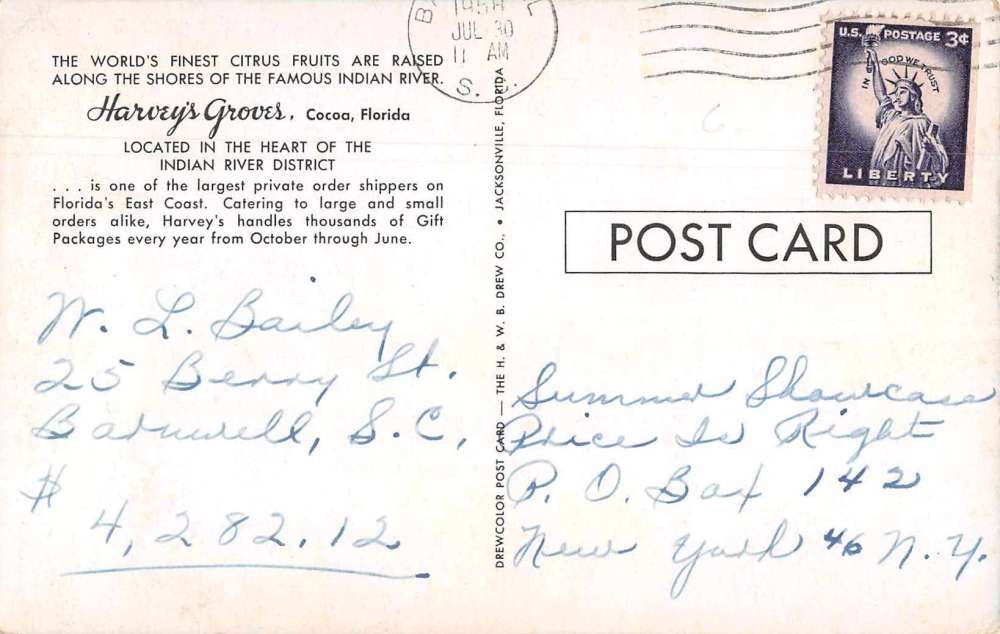 THE WORLD'S FINEST CITRUS FRUITS ARE RAISED
ALONG THE SHORES OF THE FAMOUS INDIAN RIVER.
Harvey's Groves, Cocoa, Florida
LOCATED IN THE HEART OF THE
INDIAN RIVER DISTRICT
. . . is one of the largest private order shippers on
Florida's East Coast. Catering to large and small
orders alike, Harvey's handles thousands of Gift
Packages every year from October through June.
W. L. Bailey
25 Berry St.
Barnwell, S.C,
$
4,282.12
DREWCOLOR POST CARD — THE H. & W. B. DREW CO., • JACKSONVILLE, FLORIDA
1958
JUL 30
11 AM
S. C.
U.S. POSTAGE 3¢
IN GOD WE TRUST
LIBERTY
POST CARD
Summer Showcase
Price Is Right
P. O. Box 142
New York 46 N.Y.